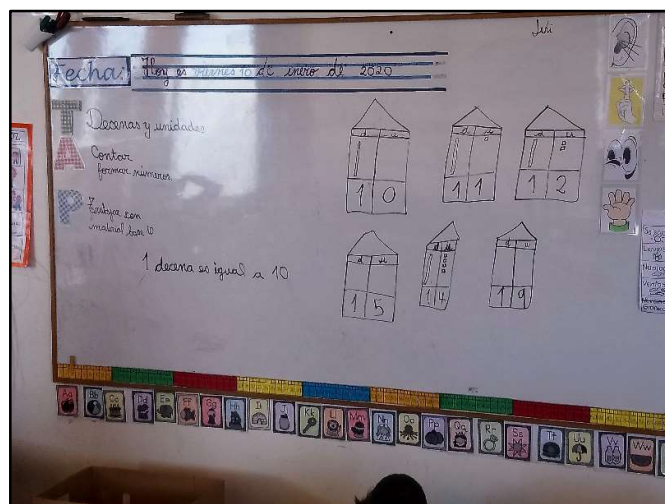 Fecha: Hoy es viernes 10 de enero de 2020
T Decenas y unidades
A Contar
formar números
P Trabajar con
material base 10
1 decena es igual a 10
d u
1 0
d u
1 1
d u
1 2
d u
1 5
d u
1 4
d u
1 9
Aa Bb Cc Dd Ee Ff Gg Hh Ii Jj Kk Ll Mm Nn Oo Pp Qq Rr Ss Tt Uu Vv Ww